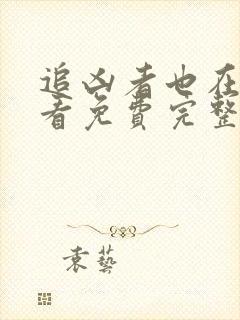 追凶者也在
看免费完整
袁艺